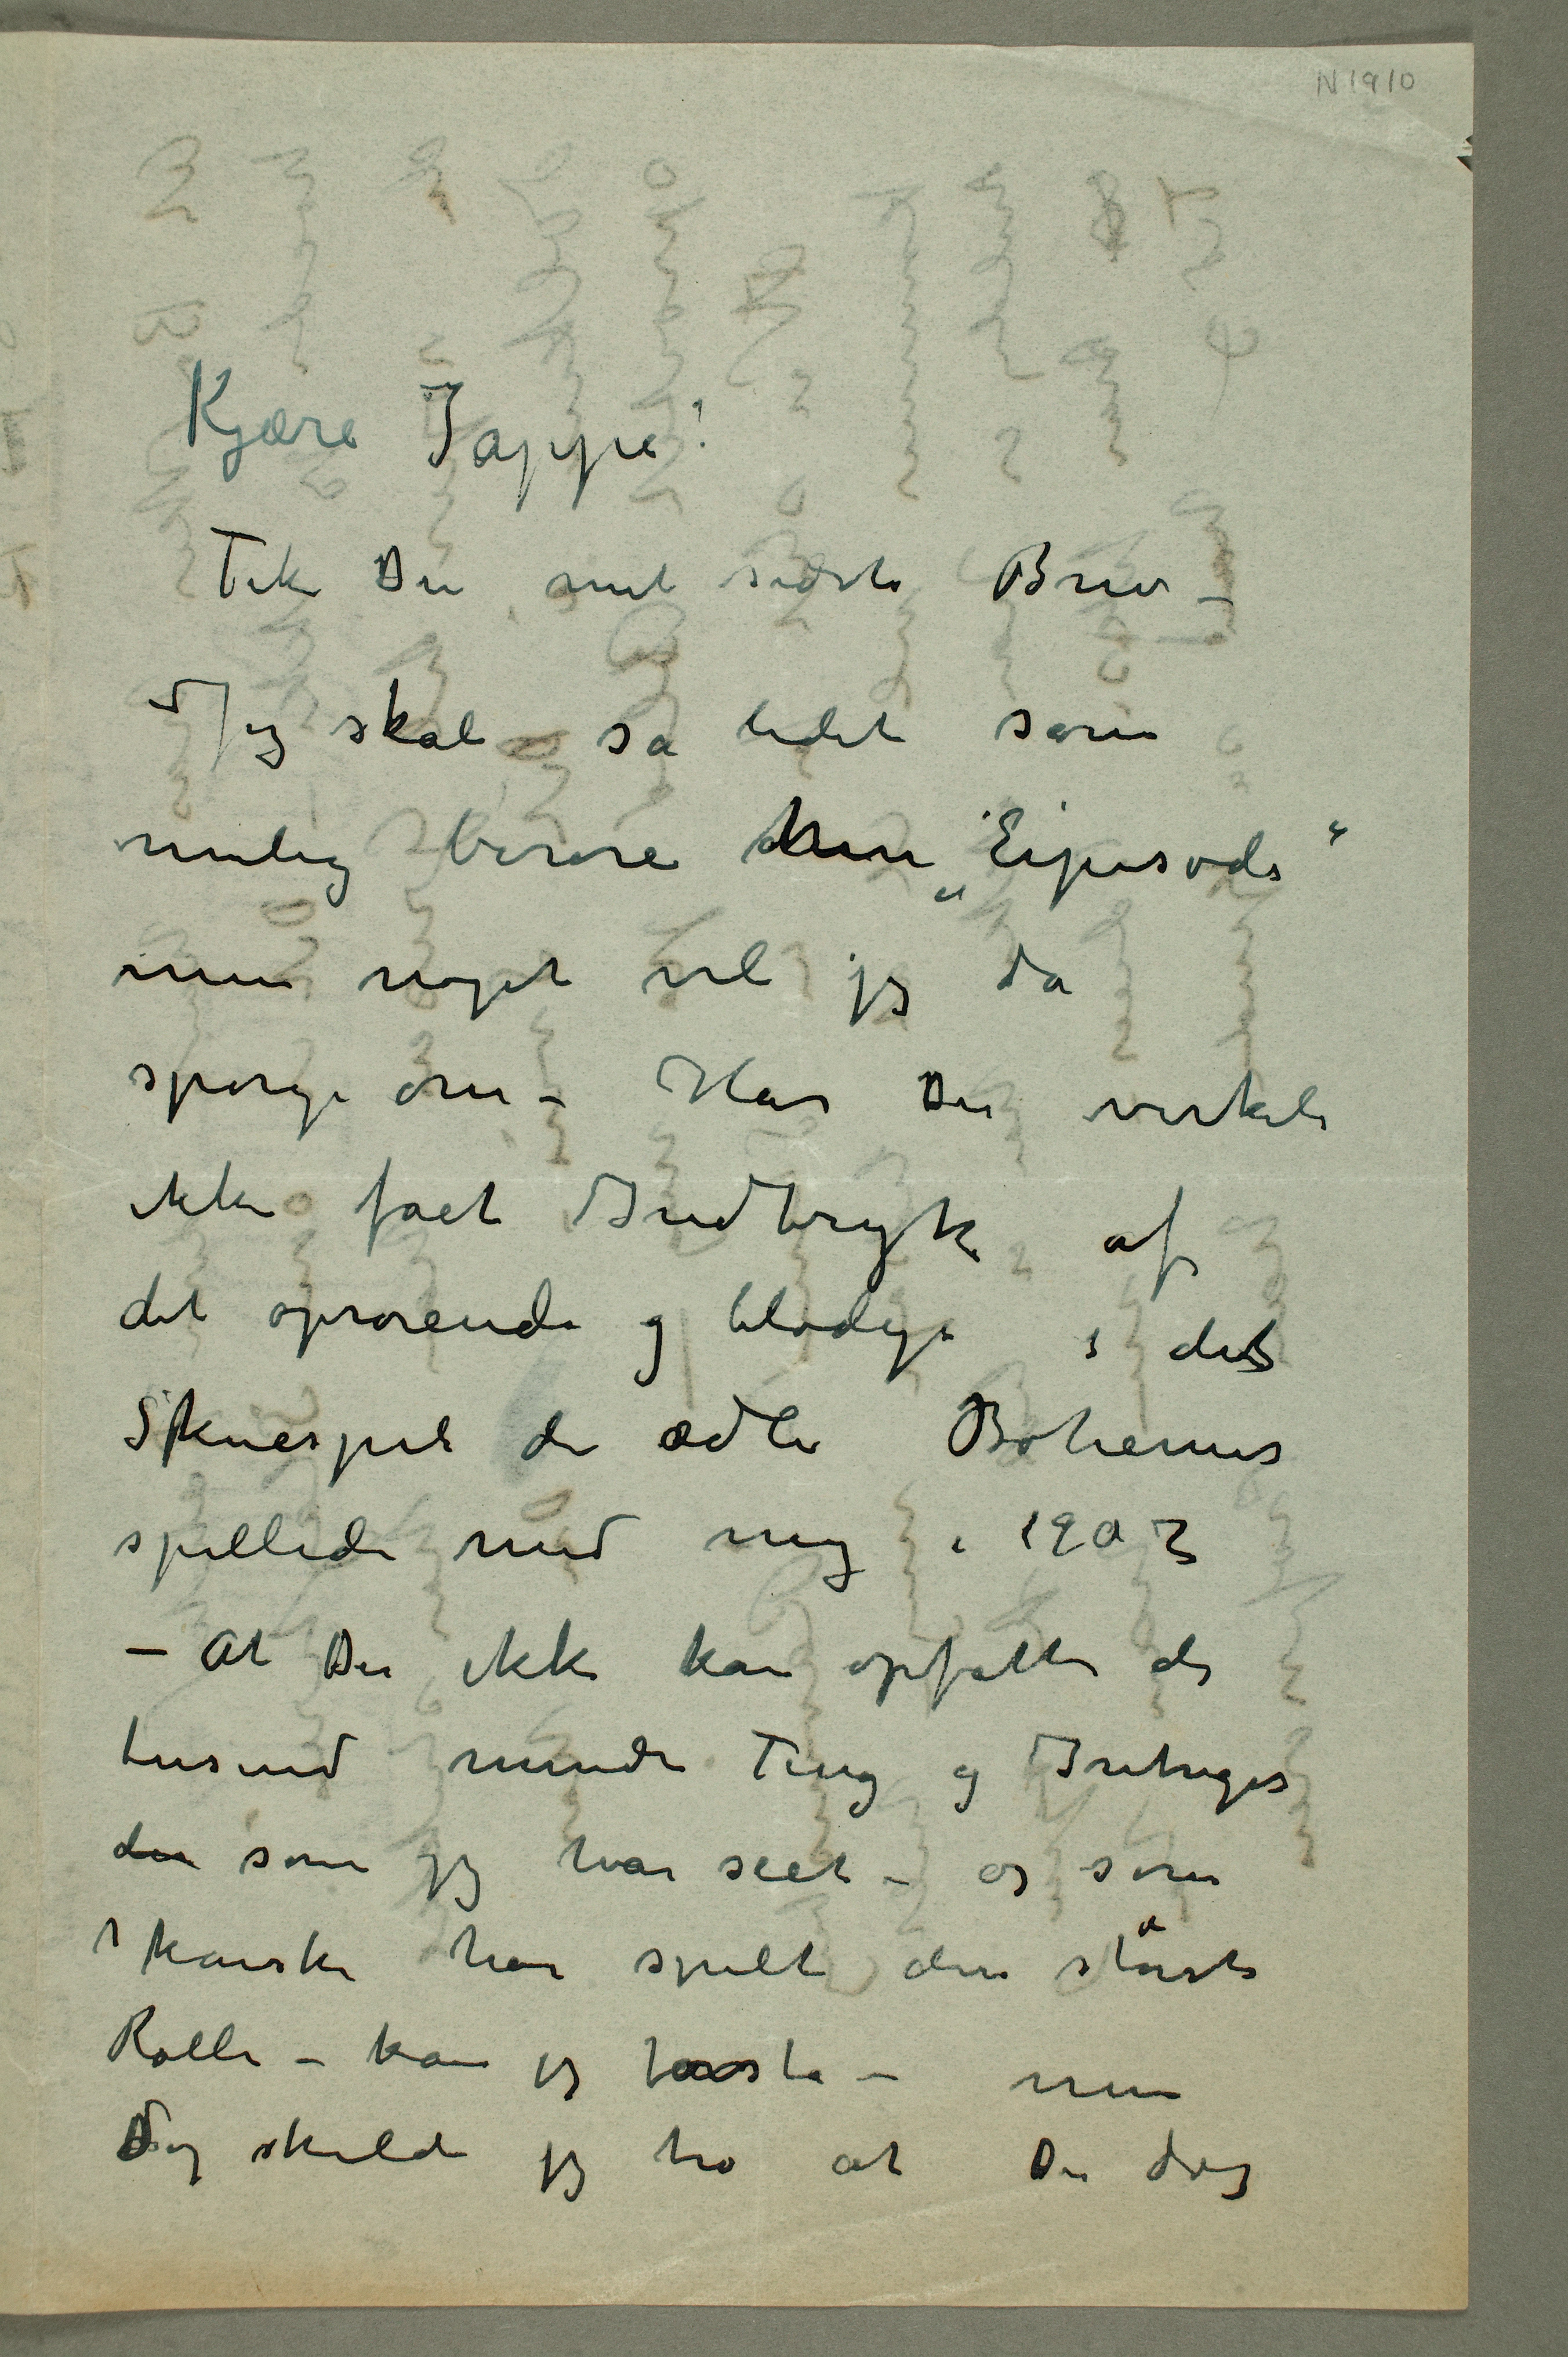 N 1910
Kjære Jappe!
Fik Du mit sidste Brev –
Jeg skal så lidet som
mulig berøre hin „Episode“
men noget vil jeg da
spørge om – Har Du virkeli
ikke fået Indtryk af
det oprørende og blodige i det
Skuespil de ædle Bohemer
spillede med mig i 1902
– At Du ikke kan opfatte de
tusind mindre Ting og Intriger
som jeg har seet – og som
kanske har spilt den største
Rolle – kan jeg forstå – men
Dog skulde jeg tro at Du dog